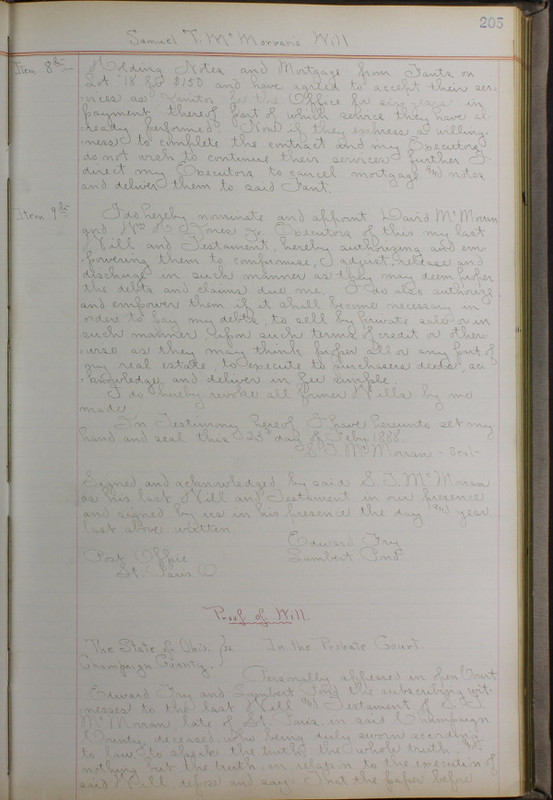 205
Samuel T. McMorran's Will
Item 8th Holding Notes and Mortgage from Fants on
Lot 18 for $150 and have agreed to accept their ser-
vices as Janitor for the Office for six years in
payment thereof part of which service they have al-
ready performed. Now if they express a willing-
ness to complete the contract and my Executors
do not wish to continue their services further I
direct my Executors to cancel mortgage and notes
and deliver them to said Fant.
Item 9th I do hereby nominate and appoint David McMorran
and Executors of this my last
Will and Testament, hereby authorizing and em-
powering them to compromise, adjust, release and
discharge in such manner as they may deem proper
the debts and claims due me. I do also authorize
and empower them if it shall become necessary in
order to pay my debts, to sell by private sale or in
such manner, upon such terms of credit or other-
wise as they may think proper all or any part of
my real estate, to execute to purchasers deeds, ac-
knowledge and deliver in fee simple.
I do hereby revoke all former Wills by me
made
In Testimony hereof I have hereunto set my
hand and seal this 23d day of Feby 1888
S. T. McMorran - Seal -
Signed and acknowledged by said S. T. McMorran
as his last Will and Testament in our presence
and signed by us in his presence the day and year
last above written
Edward Fry
Post Office Lambert Pond
St. Paris O.
Proof of Will.
The State of Ohio } ss. In the Probate Court.
Champaign County.
Personally appeared in open Court
Edward Fry and Lambert Pond the subscribing wit-
nesses to the last Will and Testament of S. T.
McMorran late of St. Paris, in said Champaign
County, deceased, who being duly sworn according
to law, to speak the truth, the whole truth and
nothing but the truth in relation to the execution of
said Will depose and say: That the paper before